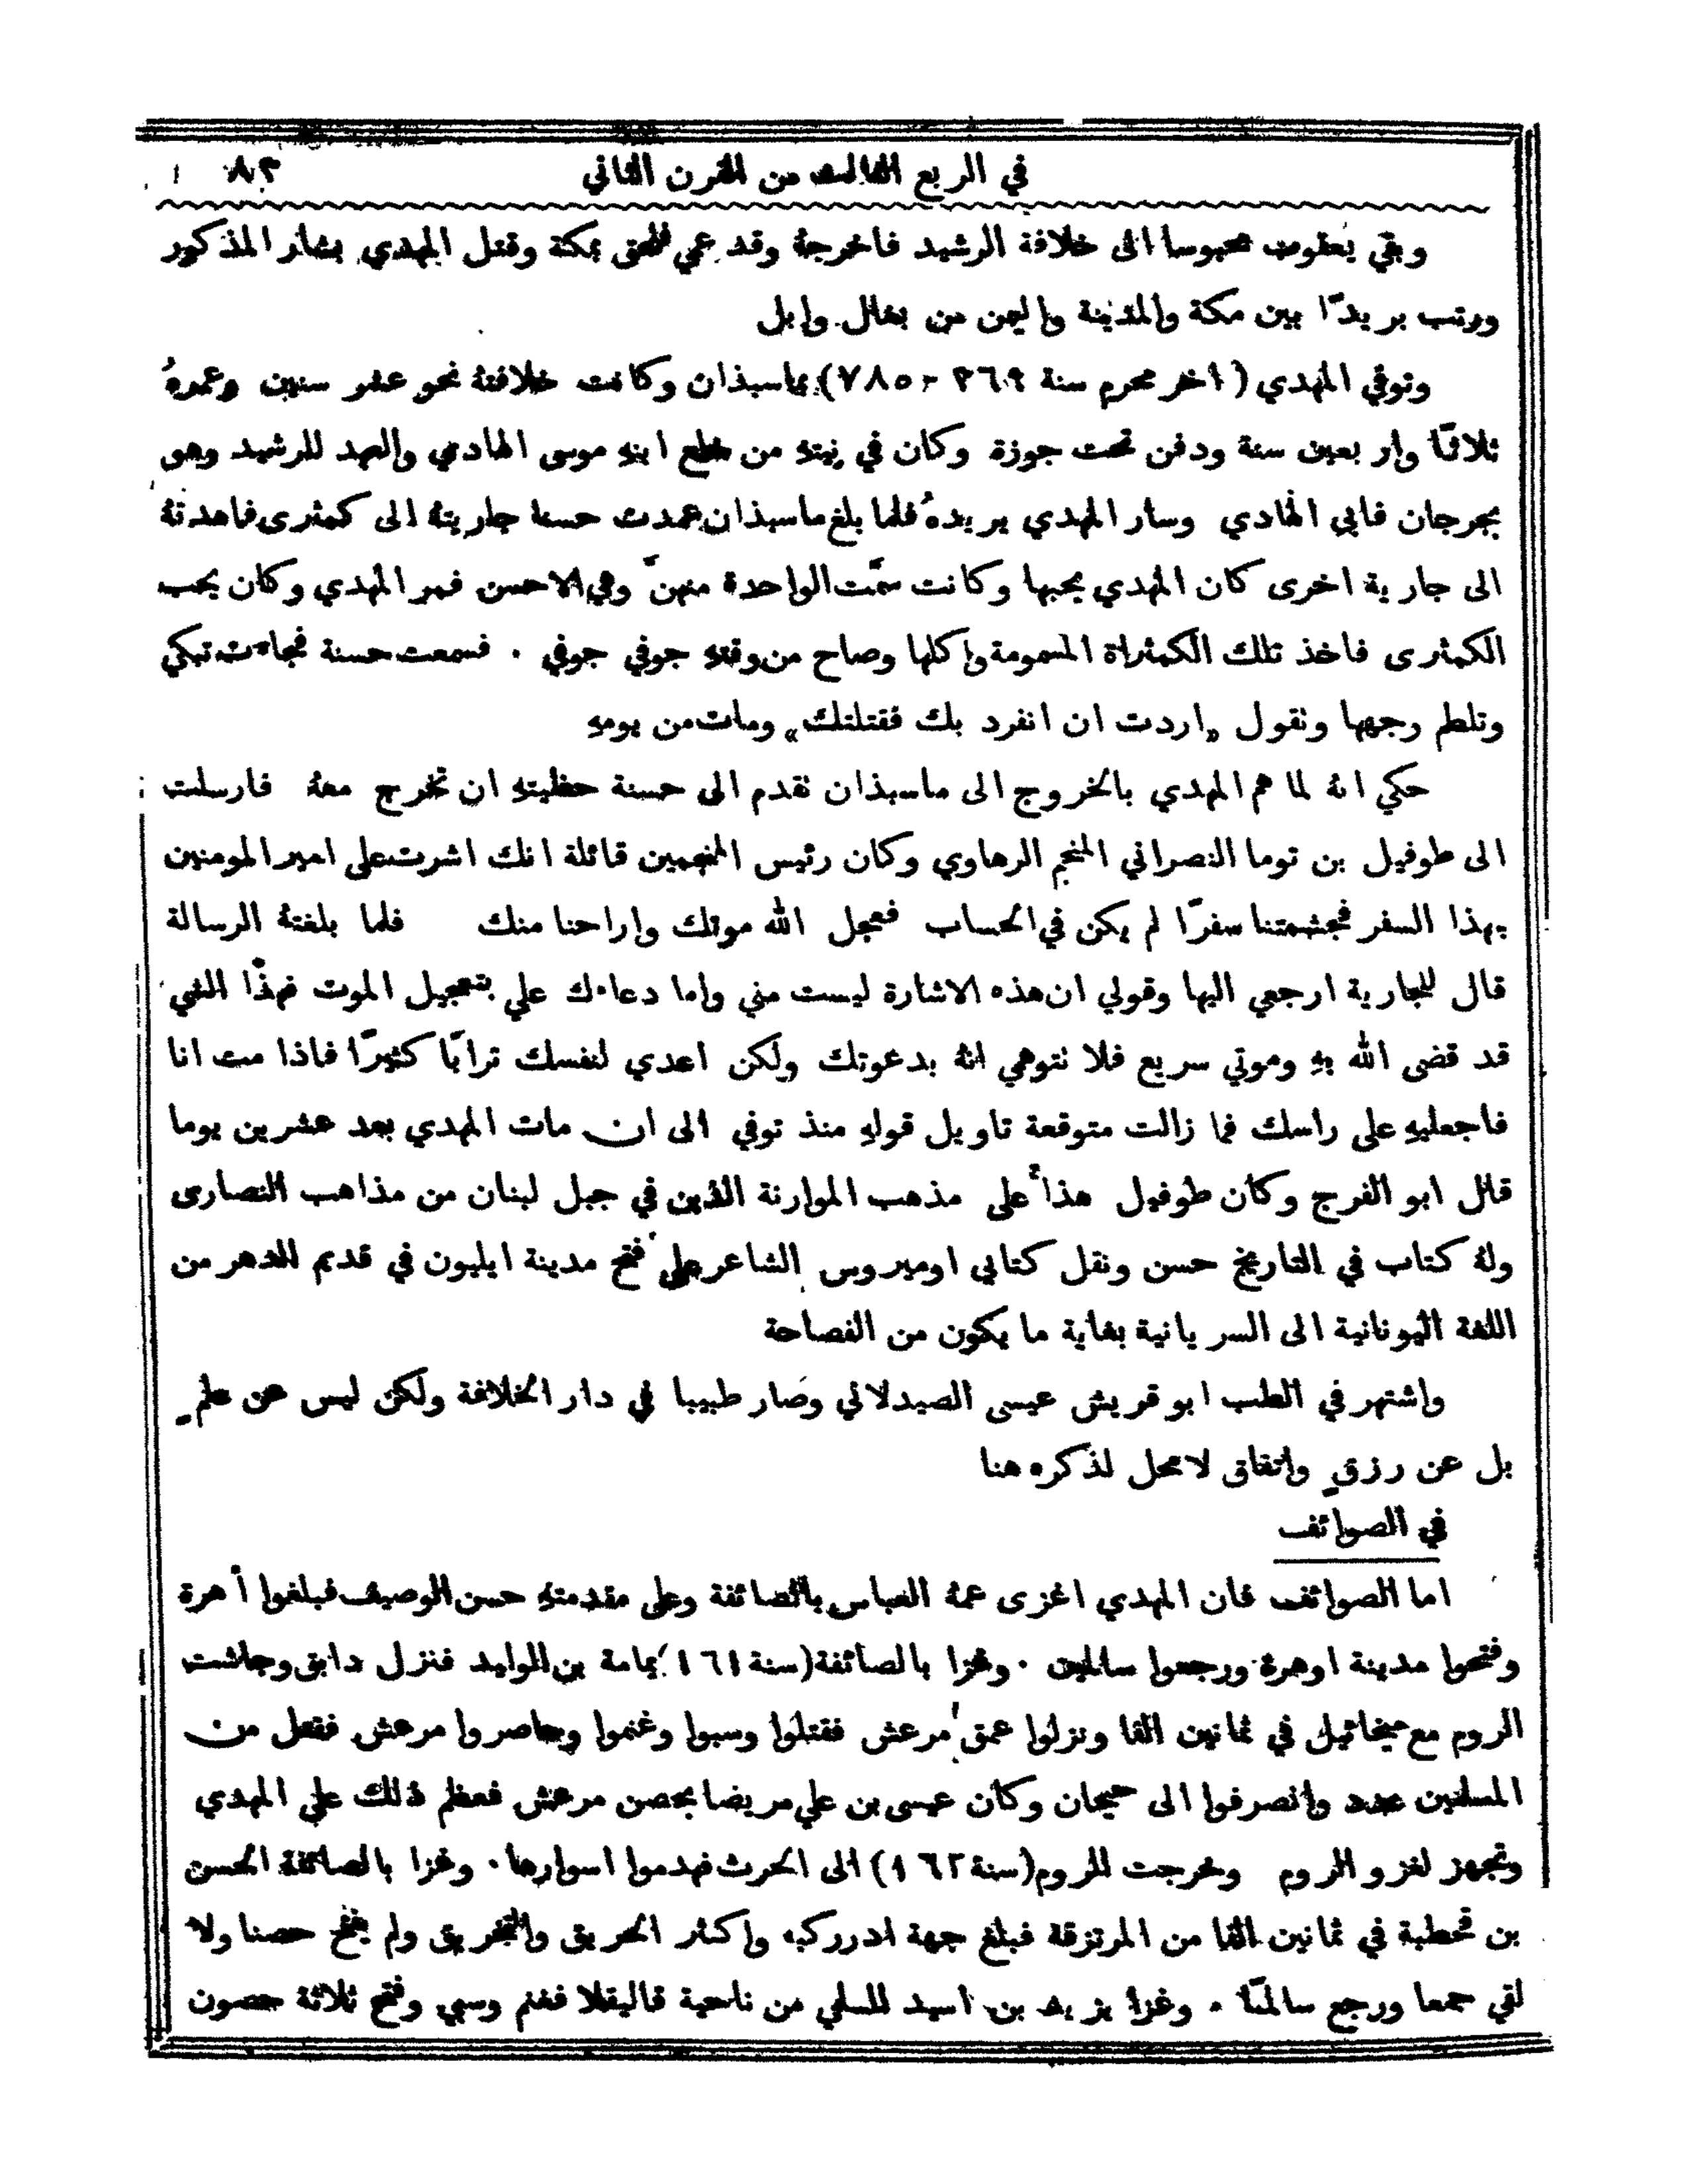 في الربع الثالث من القرن الثاني ٨٣
وبقي يعقوب محبوسا الى خلافة الرشيد فاخرجهُ وقد عمي فلحق بمكة وقتل المهدي بشار المذكور
ورتب بريدًا بين مكة والمدينة واليمن من بغال وابل
وتوفي المهدي (اخر محرم سنة ١٦٩ - ٧٨٥) بماسبذان وكانت خلافتهُ نحو عشر سنين وعمرهُ
ثلاثًا واربعين سنة ودفن تحت جوزة وكان في نيتهِ من خلع ابنهِ موسى الهادي والعهد للرشيد وهو
بجرجان فابى الهادي وسار المهدي يريدهُ فلما بلغ ماسبذان عمدت حسنا جاريتهُ الى كمثرى فاهدتهُ
الى جارية اخرى كان المهدي يحبها وكانت سمّت الواحدة منهنّ وهي الاحسن فمر المهدي وكان يحب
الكمثرى فاخذ تلك الكمثراة المسمومة واكلها وصاح من وقتهِ جوفي جوفي . فسمعت حسنة فجاءت تبكي
وتلطم وجهها وتقول «اردت ان انفرد بك فقتلتك» ومات من يومهِ
حكي انهُ لما هم المهدي بالخروج الى ماسبذان تقدم الى حسنة حظيتهِ ان تخرج معهُ فارسلت
الى طوفيل بن توما النصراني المنجم الرهاوي وكان رئيس المنجمين قائلة انك اشرت على امير المومنين
بهذا السفر فجشمتنا سفرًا لم يكن في الحساب فعجل الله موتك واراحنا منك فلما بلغتهُ الرسالة
قال للجارية ارجعي اليها وقولي ان هذه الاشارة ليست مني واما دعاءك علي بتعجيل الموت فهذا الشي
قد قضى الله بهِ وموتي سريع فلا نتوهمي انهُ بدعوتك ولكن اعدي لنفسك ترابًا كثيرًا فاذا مت انا
فاجعليهِ على راسك فما زالت متوقعة تاويل قولهِ منذ توفي الى ان مات المهدي بعد عشرين يوما
قال ابو الفرج وكان طوفيل هذا على مذهب الموارنة الذين في جبل لبنان من مذاهب النصارى
ولهُ كتاب في التاريخ حسن ونقل كتابي اوميروس الشاعر على فتح مدينة ايليون في قديم الدهر من
اللغة اليونانية الى السريانية بغاية ما يكون من الفصاحة
واشتهر في الطب ابو قريش عيسى الصيدلاني وصار طبيبا في دار الخلافة ولكن ليس عن علمٍ
بل عن رزقٍ واتفاق لا محل لذكره هنا
في الصوائف
اما الصوائف فان المهدي اغزى عمهُ العباس بالصائفة وعلى مقدمتهِ حسن الوصيف فبلغوا أهرة
وفتحوا مدينة اوهرة ورجعوا سالمين . وغزا بالصائفة (سنة ١٦١) يمامة بن الوليد فنزل دابق وجاشت
الروم مع ميخائيل في ثمانين الفا ونزلوا عمق مرعش فقتلوا وسبوا وغنموا وحاصروا مرعش فقتل من
المسلمين عدد وانصرفوا الى جيحان وكان عيسى بن علي مريضا بحصن مرعش فعظم ذلك على المهدي
وتجهز لغزو الروم وخرجت الروم (سنة ١٦٢) الى الحرث فهدموا اسوارها . وغزا بالصائفة الحسن
بن قحطبة في ثمانين الفا من المرتزقة فبلغ جهة ادرركبه واكثر الحريق والتخريق ولم يفتح حصنا ولا
لقي جمعا ورجع سالمًا . وغزا يزيد بن اسيد السلمي من ناحية قاليقلا فغنم وسبي وفتح ثلاثة حصون